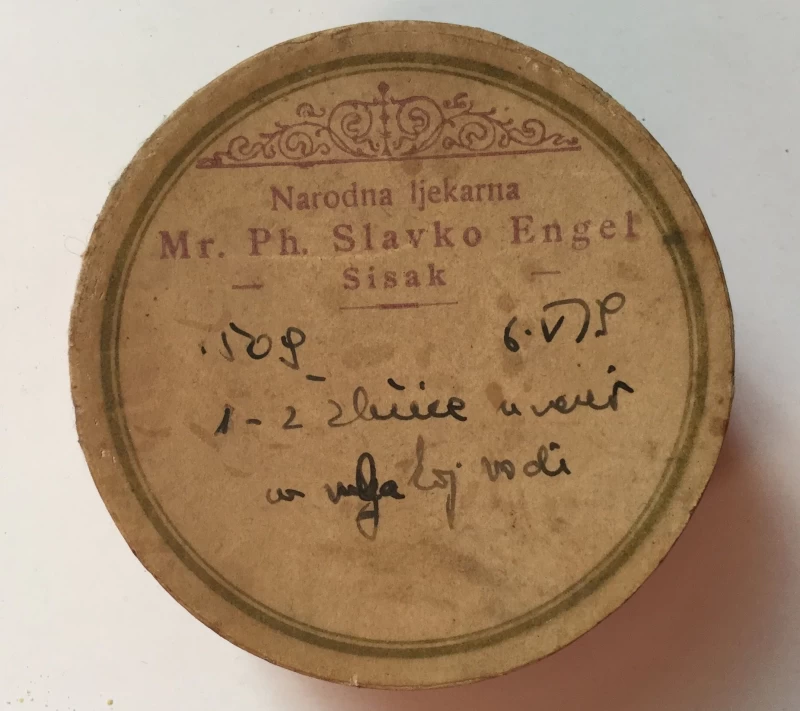 Narodna ljekarna
Mr. Ph. Slavko Engel
— Sisak —
509 6.VI
1-2 žličice uvečer
u mlakoj vodi